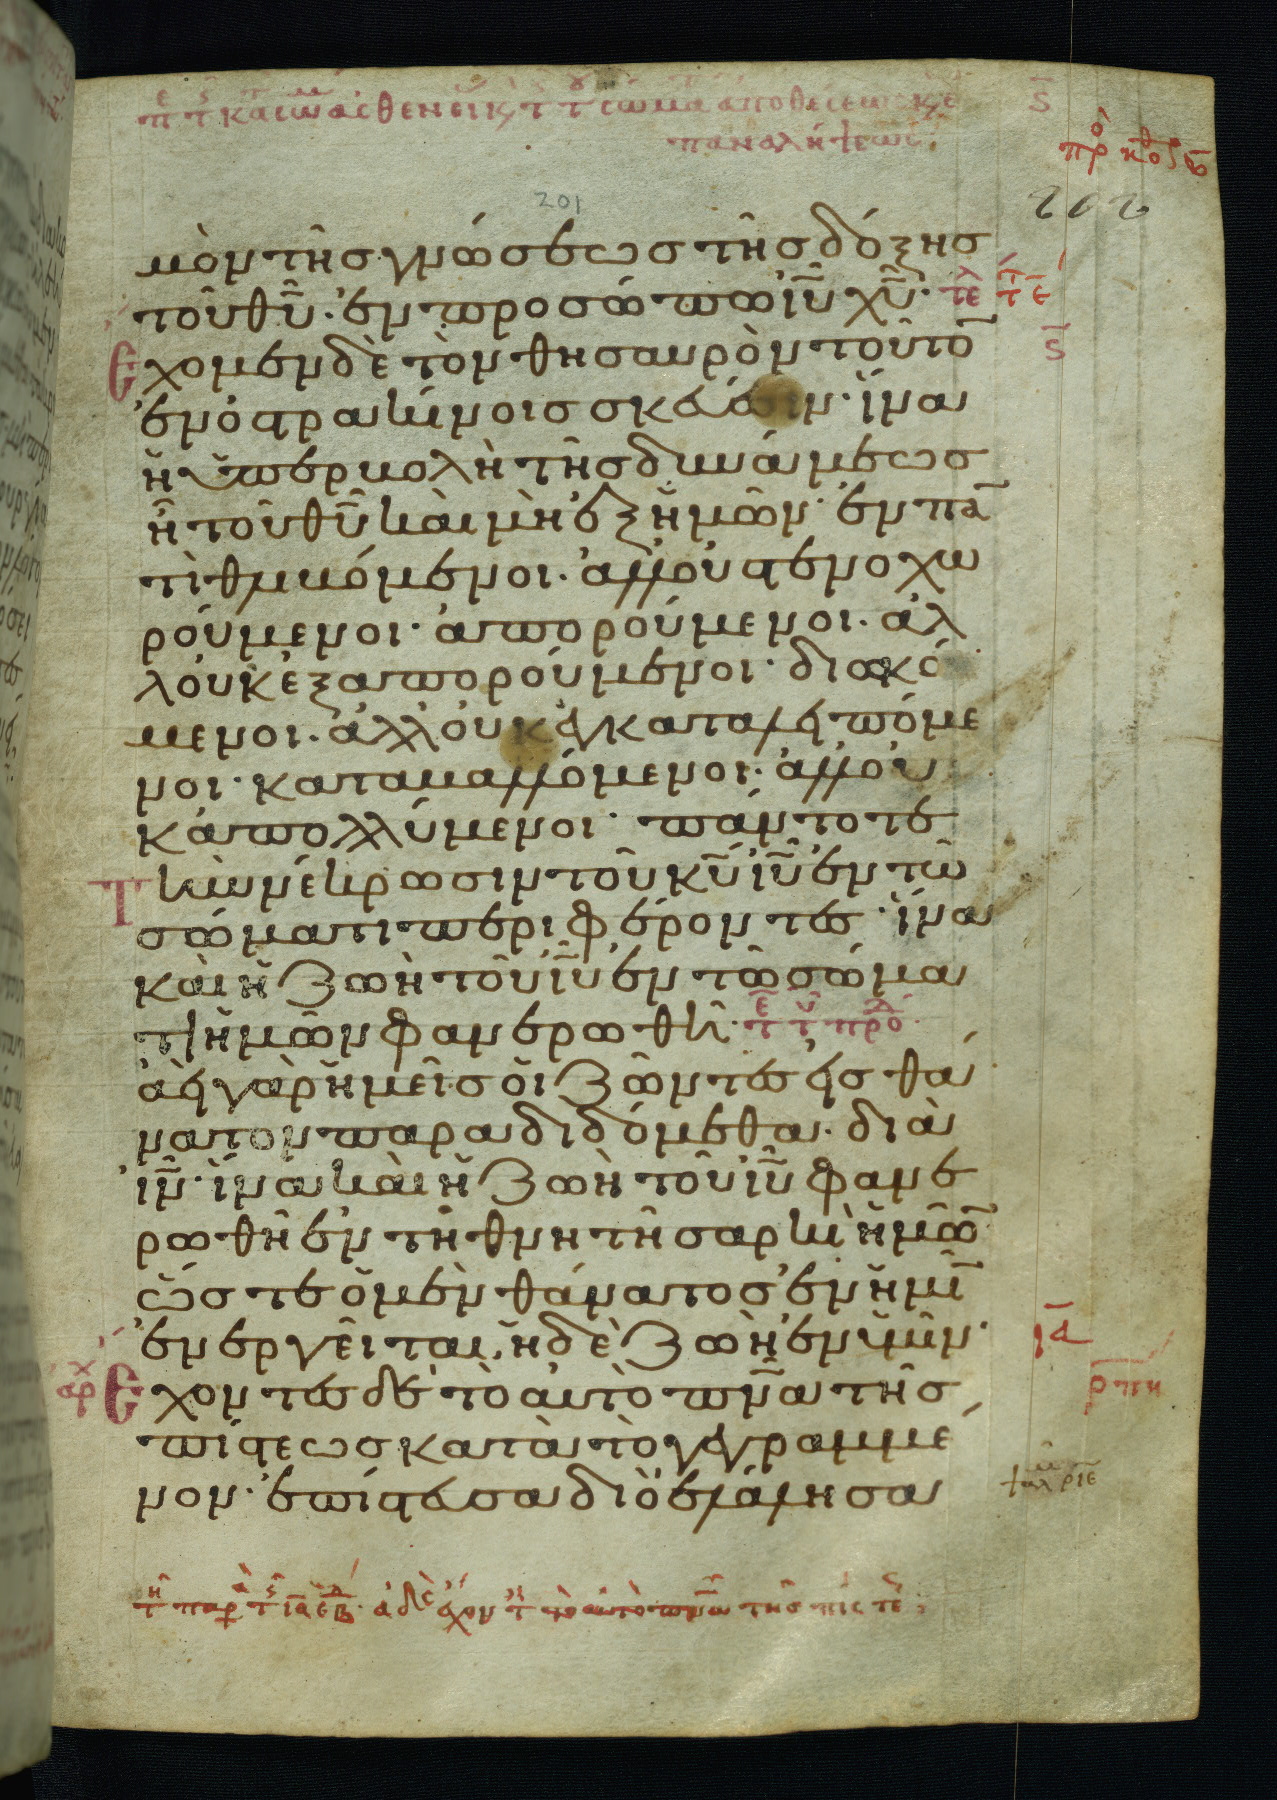 202
201
μὸν τῆς γνώσεως τῆς δόξης
τοῦ θυ̅· ἐν προσώπω ιυ̅ χυ̅· τε
Εχομεν δὲ τὸν θησαυρὸν τοῦτο̅
ἐν ὀστρακίνοις σκεύεσιν· ἵνα
ἡ ὑπερβολὴ τῆς δυνάμεως
ἦ τοῦ θυ̅ καὶ μὴ ἐξ ἡμῶν· ἐν πα̅
τὶ θλιβόμενοι· ἀλλ' οὐ στενοχω
ρούμενοι· ἀπορούμενοι· ἀλ
λ' οὐκ ἐξαπορούμενοι· διωκό
μενοι· ἀλλ' οὐκ ἐγκαταλειπόμε
νοι· καταβαλλόμενοι· ἀλλ' οὐ
κ ἀπολλύμενοι· πάντοτε
Τὴν νέκρωσιν τοῦ κυ̅ ιυ̅ ἐν τῶ
σώματι περιφέροντες· ἵνα
καὶ ἡ ζωὴ τοῦ ιυ̅ ἐν τῶ σώμα
τι ἡμῶν φανερωθῆ·
ἀεὶ γὰρ ἡμεῖς οἱ ζῶντες εἰς θά
νατον παραδιδόμεθα· διὰ
ιν̅· ἵνα καὶ ἡ ζωὴ τοῦ ιυ̅ φανε
ρωθῆ ἐν τῆ θνητῆ σαρκὶ ἡμῶ̅·
ὥστε ὁ μὲν θάνατος ἐν ἡμῖ̅
ἐνεργεῖται, ἡ δὲ ζωὴ ἐν ὑμῖν·
Εχοντες δὲ τὸ αὐτὸ πνα̅ τῆς
πίστεως κατὰ τὸ γεγραμμέ
νον· ἐπίστευσα διὸ ἐλάλησα
ια̅
ρπη